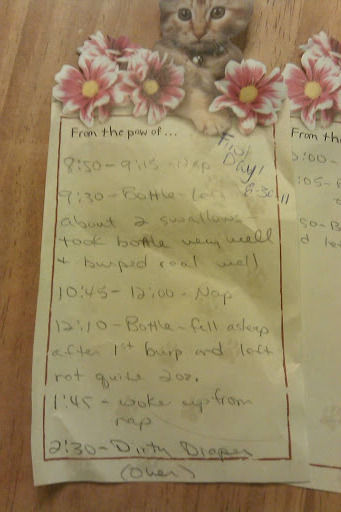 From the paw of...
First
Day!
8-30-11
8:50-9:15-Nap
9:30-Bottle-Left
about 2 swallows
took bottle very well
+ burped real well
10:45-12:00-Nap
12:10-Bottle-fell asleep
after 1st burp and left
not quite 2oz.
1:45-woke up from
nap
2:30-Dirty Diaper
(Over)
From th
:00-
:05-
50-B
d le